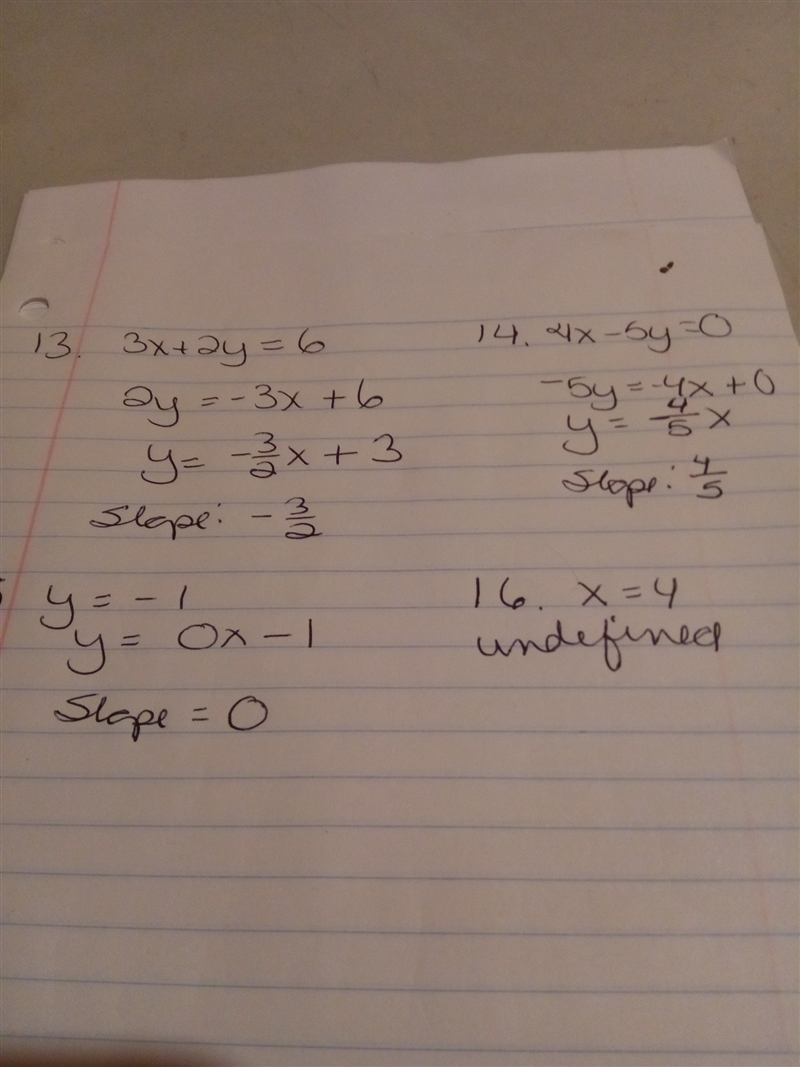 13. 3x+2y=6
2y=-3x+6
y=-3/2x+3
Slope: -3/2
14. 4x-5y=0
-5y=-4x+0
y=-4/5x
Slope: 4/5
5 y=-1
y=0x-1
Slope=0
16. x=4
undefined